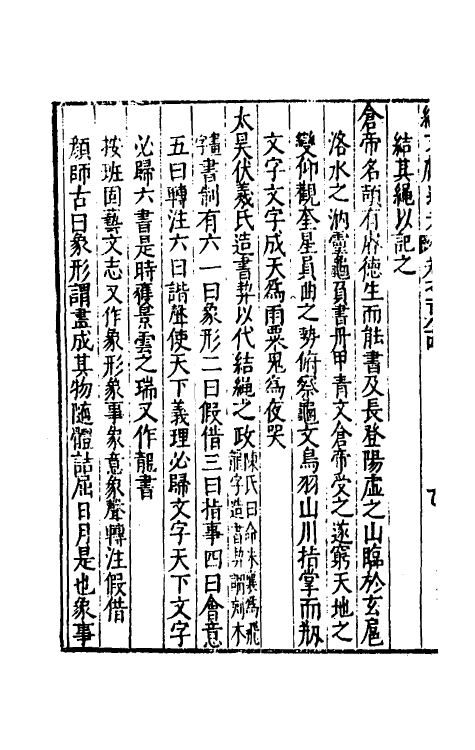 結其繩以記之
倉帝名頡有睿德生而能書及長登陽虛之山臨於玄扈
洛水之汭靈龜負書丹甲青文倉帝受之遂窮天地之
變仰觀奎星員曲之勢俯察龜文鳥羽山川指掌而
文字文字成天為雨粟鬼為夜哭
太昊伏羲氏造書契以代結繩之政陳氏曰命朱襄為飛龍字造書契謂刻木
畫字書制有六一曰象形二曰假借三曰指事四曰會意
五曰轉注六曰諧聲使天下義理必歸文字天下文字
必歸六書是時獲景雲之瑞又作龍書
按班固藝文志又作象形象事象意象聲轉注假借
顏師古曰象形謂畫成其物隨體詰屈日月是也象事